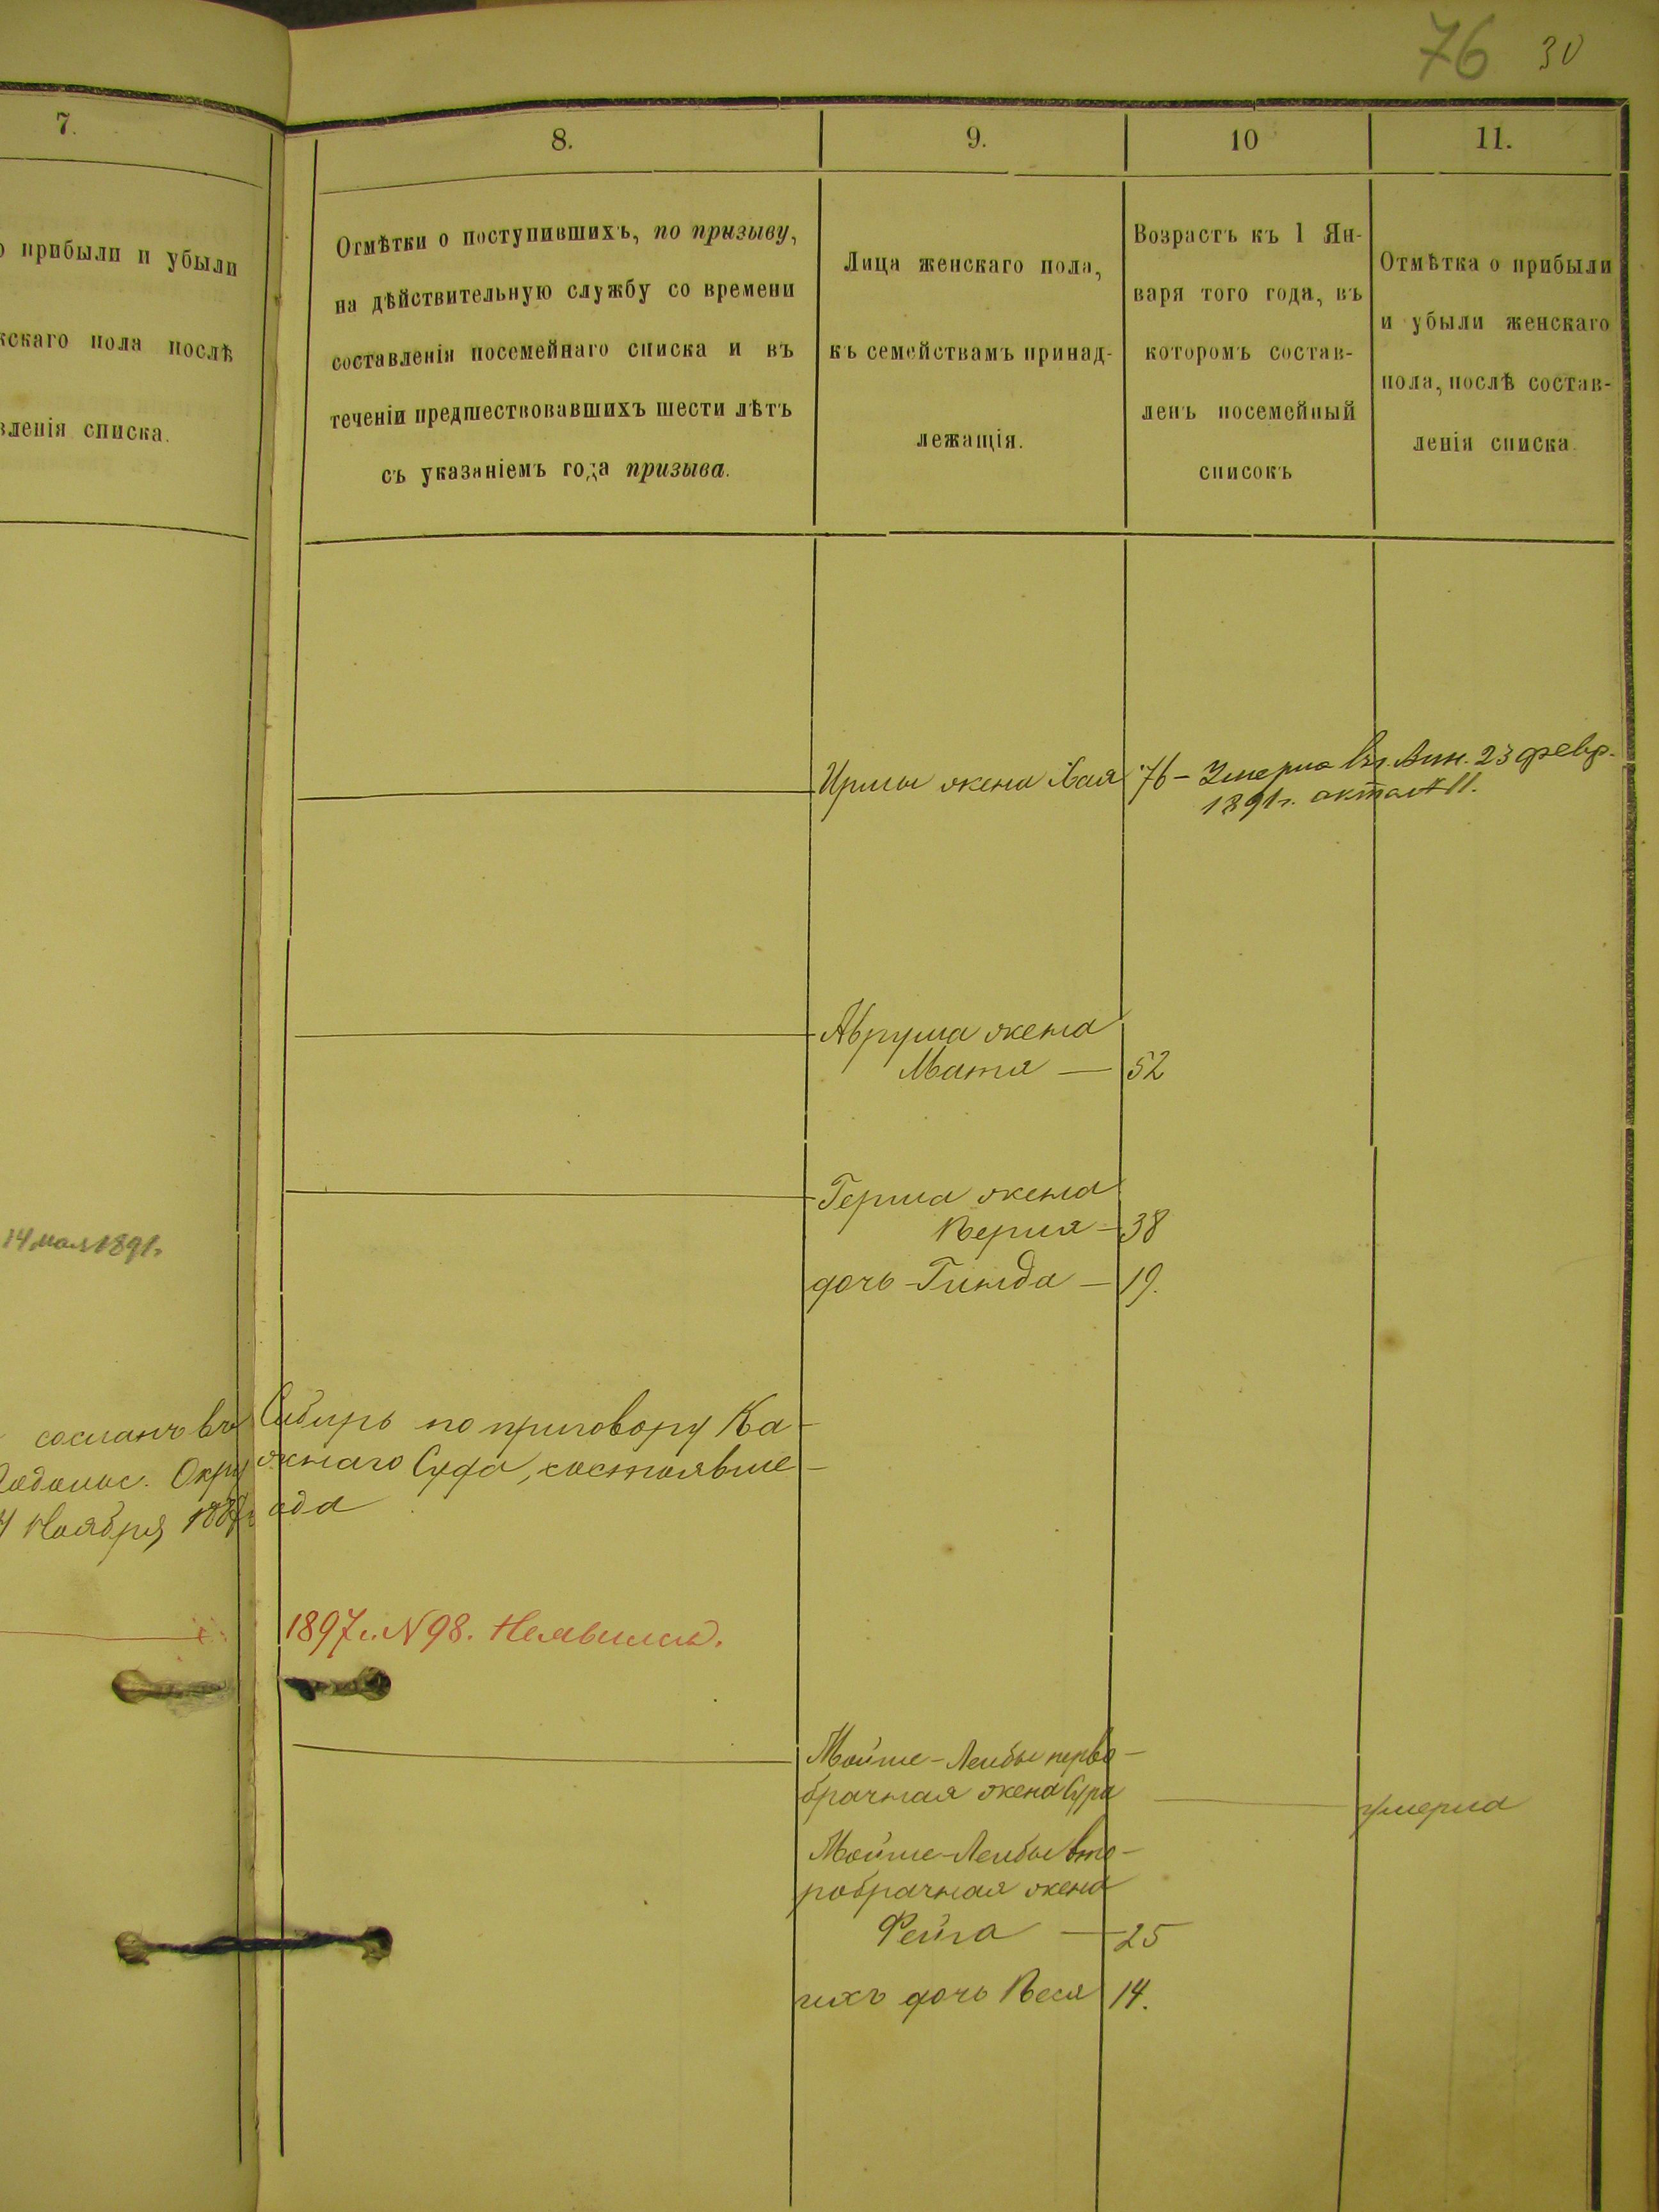 76 30
7.
8.
9.
10
11.
о прибыли и убыли
жскаго пола послѣ
вленія списка.
Отмѣтки о поступившихъ, по призыву,
на дѣйствительную службу со времени
составленія посемейнаго списка и въ
теченіи предшествовавшихъ шести лѣтъ
съ указаніемъ года призыва.
Лица женскаго пола,
къ семействамъ принад-
лежащія.
Возрастъ къ 1 Ян-
варя того года, въ
которомъ состав-
ленъ посемейный
списокъ
Отмѣтка о прибыли
и убыли женскаго
пола, послѣ состав-
ленія списка.
жена Хая 76 – Умерла 23 февр.
1891 г. актъ № 11.
Аврума жена
Матя — 52
Герша жена
Перля – 38
дочь – Гинда – 19.
14 мая 1891 г.
сосланъ въ Сибирь по приговору Ка-
Окружнаго Суда, состоявше-
Ноября ода
1897 г. N 98. Неявился.
Мойше-Лейбы перво-
брачная жена Сура — умерла
Мойше-Лейбы вто-
робрачная жена
Фейга — 25
ихъ дочь Песя 14.